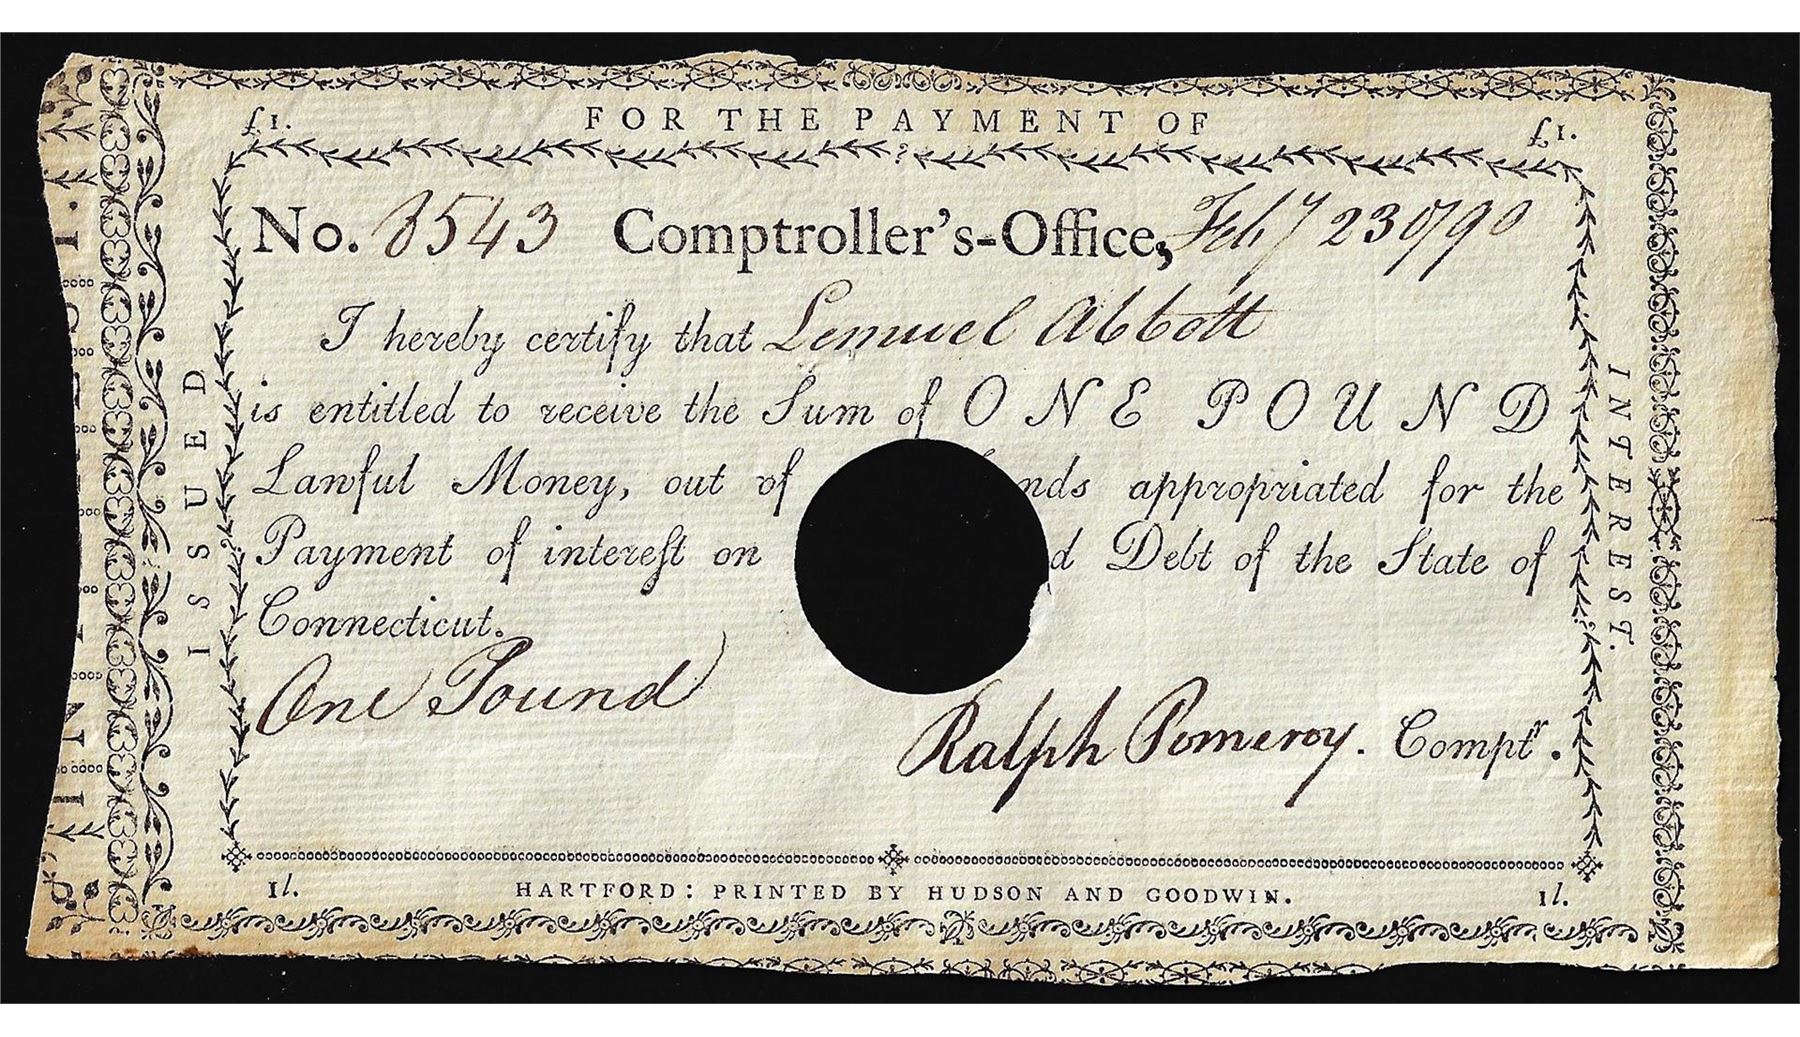 FOR THE PAYMENT OF
£1. £1.
No. 8543 Comptroller's-Office, Feby 23d 1790
I hereby certify that Lemuel Abbott
is entitled to receive the Sum of ONE POUND
Lawful Money, out of nds appropriated for the
Payment of intereſt on d Debt of the State of
Connecticut.
One Pound
Ralph Pomeroy. Comptr.
1l. HARTFORD: PRINTED BY HUDSON AND GOODWIN. 1l.
ISSUED
INTEREST.